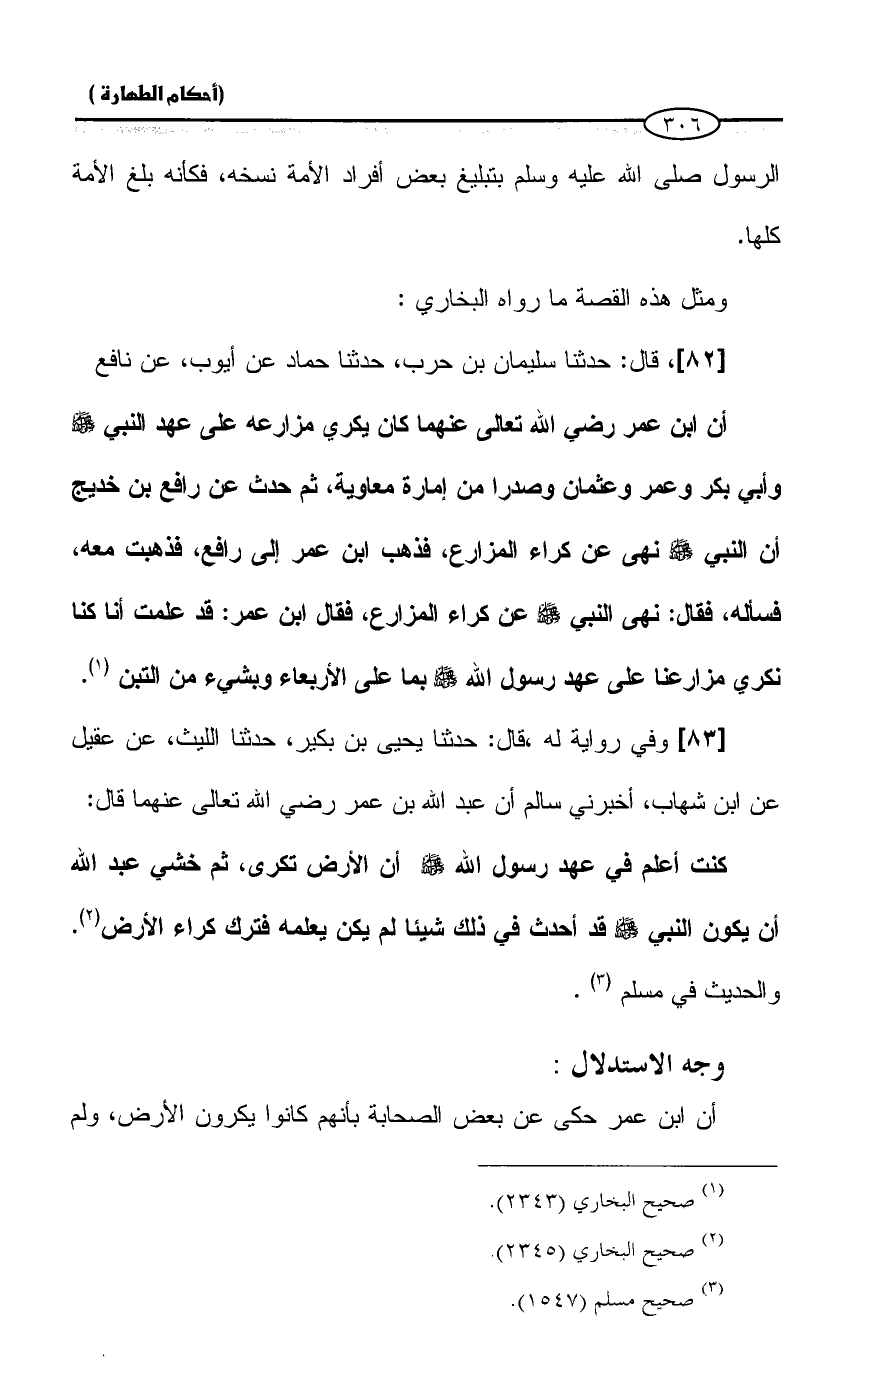 (أحكام الطهارة )
٣٠٦
الرسول صلى الله عليه وسلم بتبليغ بعض أفراد الأمة نسخه، فكأنه بلغ الأمة
كلها.
ومثل هذه القصة ما رواه البخاري :
[٨٢]، قال: حدثنا سليمان بن حرب، حدثنا حماد عن أيوب، عن نافع
أن ابن عمر رضي الله تعالى عنهما كان يكري مزارعه على عهد النبي ﷺ
وأبي بكر وعمر وعثمان وصدرا من إمارة معاوية، ثم حدث عن رافع بن خديج
أن النبي ﷺ نهى عن كراء المزارع، فذهب ابن عمر إلى رافع، فذهبت معه،
فسأله، فقال: نهى النبي ﷺ عن كراء المزارع، فقال ابن عمر: قد علمت أنا كنا
نكري مزارعنا على عهد رسول الله ﷺ بما على الأربعاء وبشيء من التبن (١).
[٨٣] وفي رواية له ،قال: حدثنا يحيى بن بكير، حدثنا الليث، عن عقيل
عن ابن شهاب، أخبرني سالم أن عبد الله بن عمر رضي الله تعالى عنهما قال:
كنت أعلم في عهد رسول الله ﷺ أن الأرض تكرى، ثم خشي عبد الله
أن يكون النبي ﷺ قد أحدث في ذلك شيئا لم يكن يعلمه فترك كراء الأرض(٢).
والحديث في مسلم (٣) .
وجه الاستدلال :
أن ابن عمر حكى عن بعض الصحابة بأنهم كانوا يكرون الأرض، ولم
(١) صحيح البخاري (٢٣٤٣).
(٢) صحيح البخاري (٢٣٤٥).
(٣) صحيح مسلم (١٥٤٧).